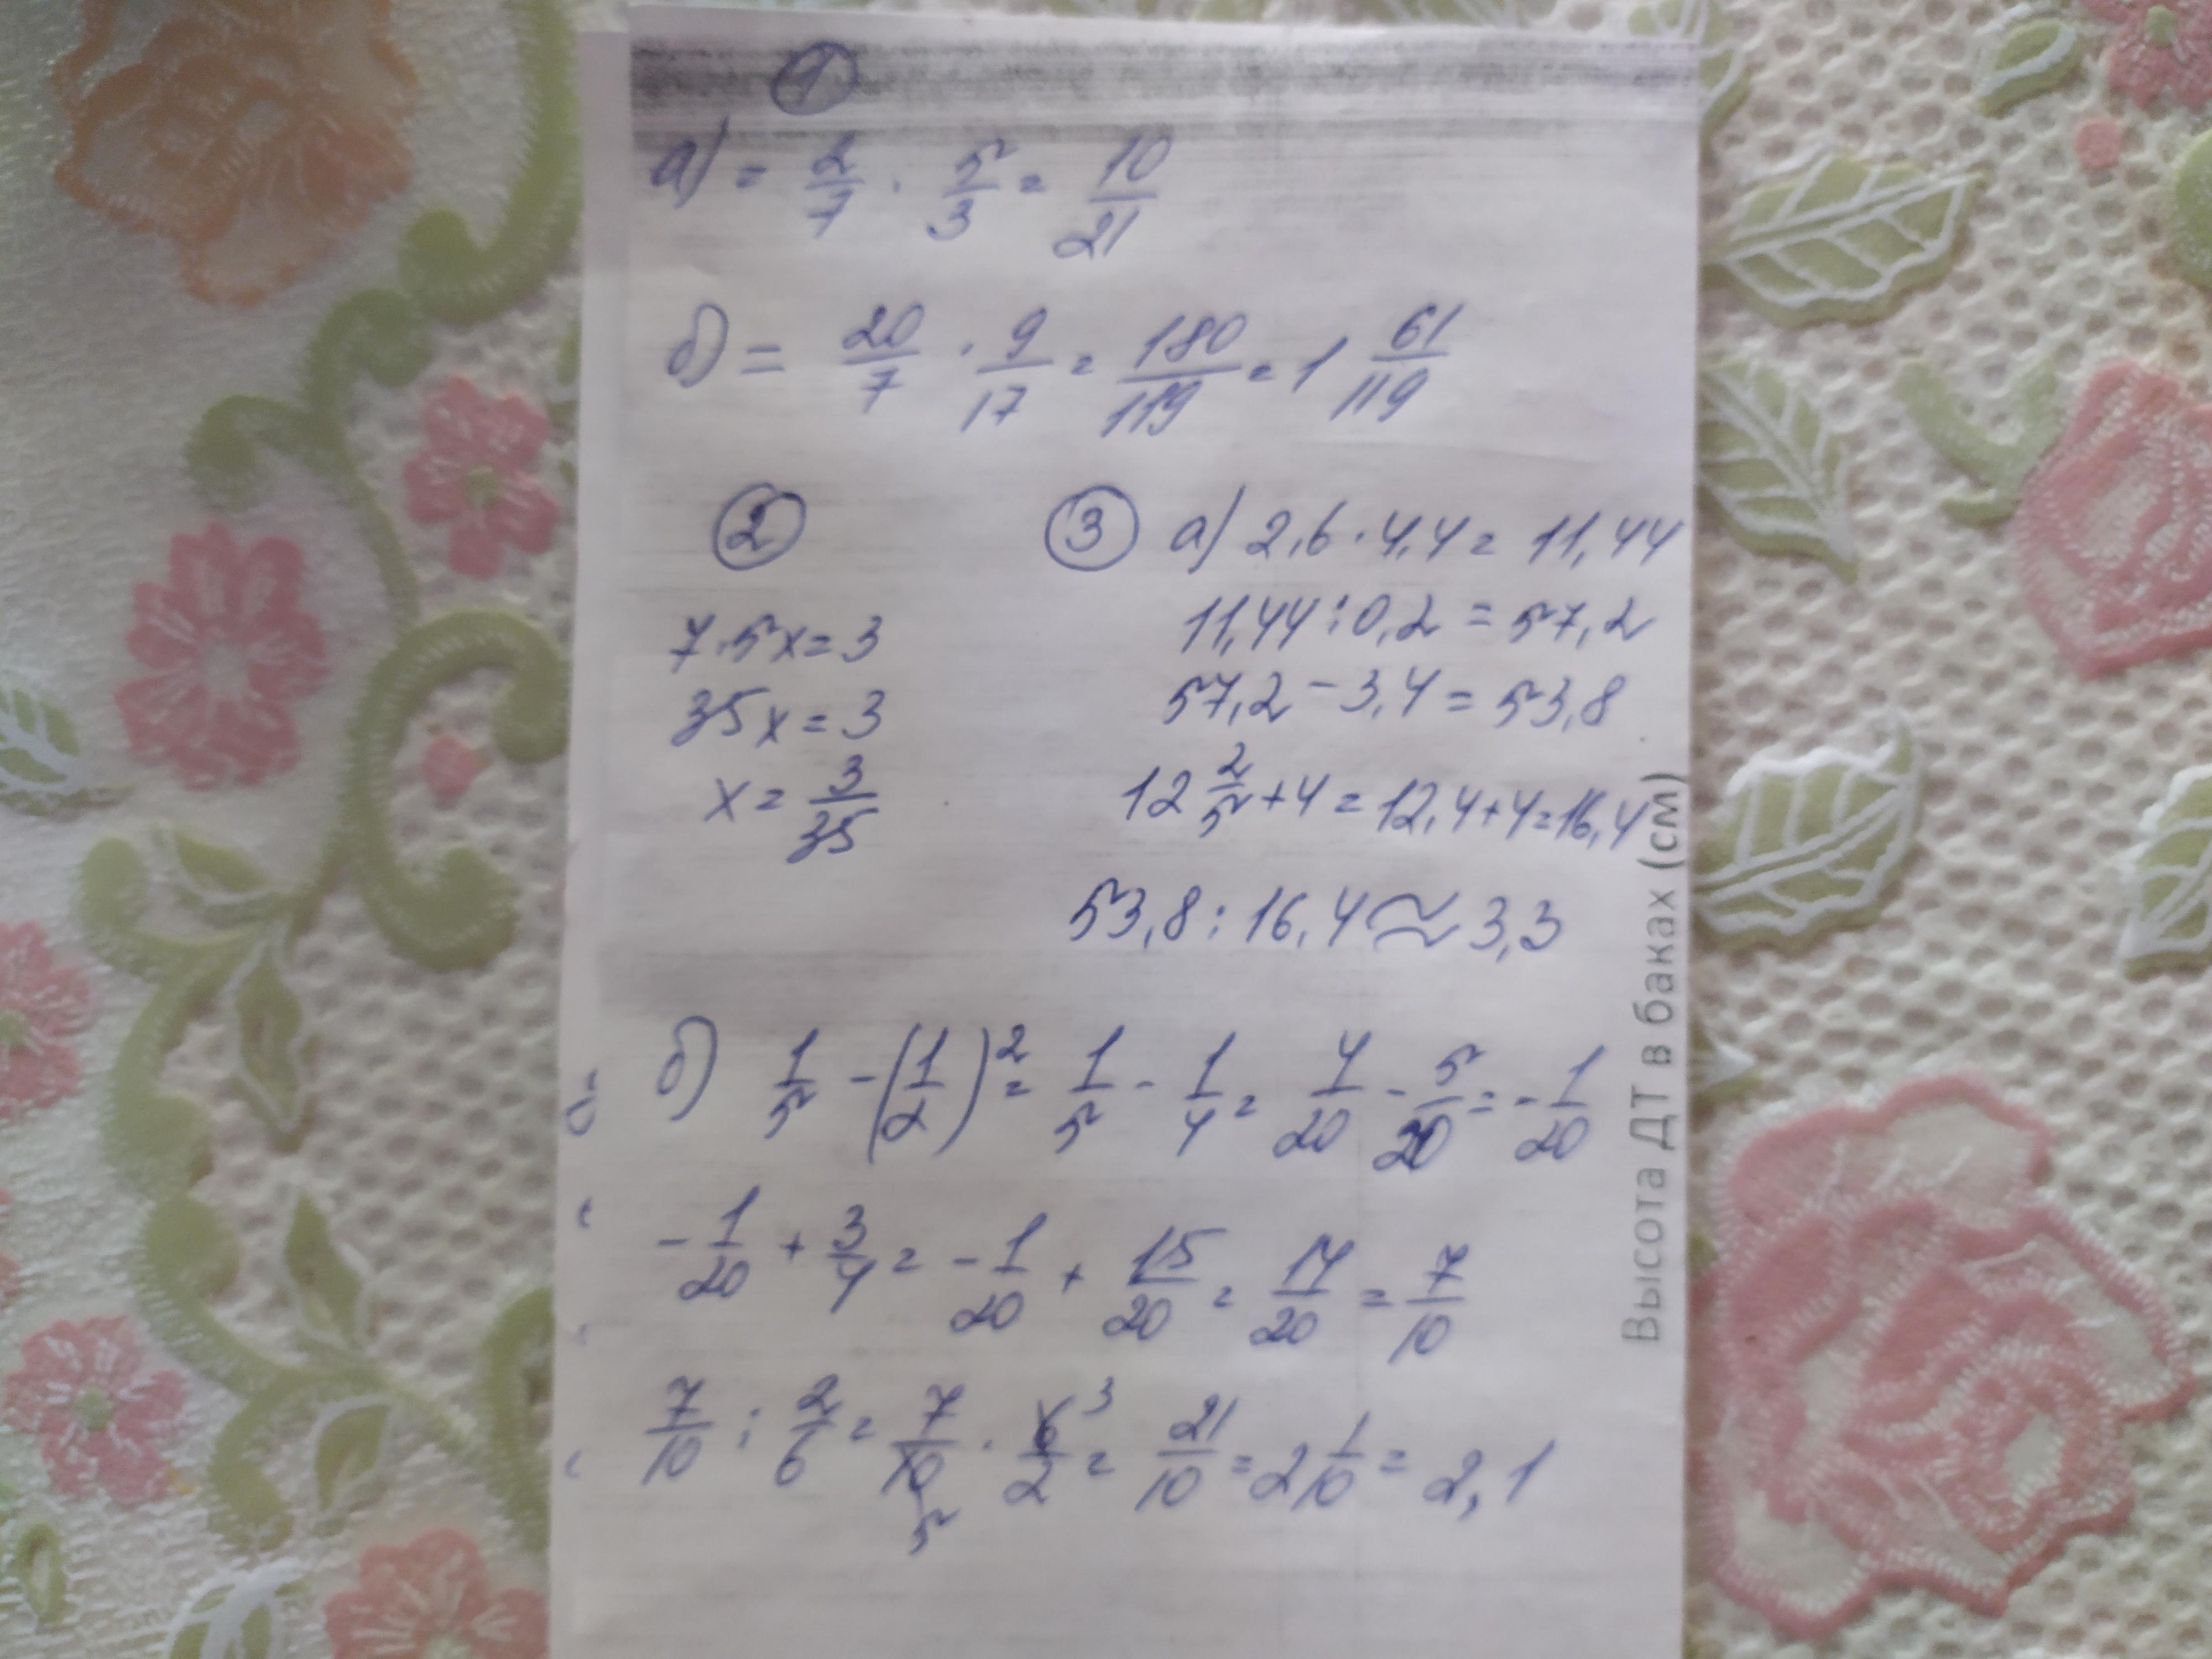 1
а) = 2/7 · 5/3 = 10/21
б) = 20/7 · 9/17 = 180/119 = 1 61/119
2
7·5x=3
35x=3
x = 3/35
3 а) 2,6 · 4,4 = 11,44
11,44 : 0,2 = 57,2
57,2 - 3,4 = 53,8
12 2/5 + 4 = 12,4 + 4 = 16,4
53,8 : 16,4 ≈ 3,3
б) 1/5 - (1/2)² = 1/5 - 1/4 = 4/20 - 5/20 = - 1/20
- 1/20 + 3/4 = - 1/20 + 15/20 = 14/20 = 7/10
7/10 : 2/6 = 7/10 5 · 6/2 3 = 21/10 = 2 1/10 = 2,1
Высота ДТ в баках (см)